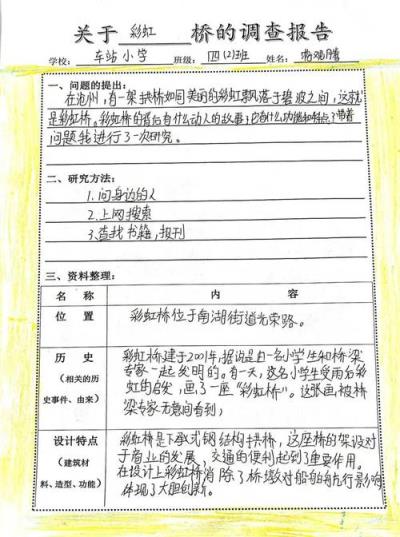 关于 彩虹 桥的调查报告
学校：车站小学 班级：四(2)班 姓名：
一、问题的提出：
在沧州，有一架拱桥如同美丽的彩虹飘落于碧波之间，这就
是彩虹桥。彩虹桥的背后有什么动人的故事？它有什么功能和特点？带着
问题我进行了一次研究。
二、研究方法：
1.问身边的人
2.上网搜索
3.查找书籍，报刊
三、资料整理：
名 称 内 容
位 置 彩虹桥位于南湖街道光荣路。
历 史
（相关的历
史事件、由来）
彩虹桥建于2001年，据说是由一名小学生和桥梁
专家一起发明的。有一天，这名小学生受雨后彩
虹的启发，画了一座“彩虹桥”。这张画被桥
梁专家无意间看到，
设计特点
（建筑材
料、造型、功能）
彩虹桥是下承式钢结构拱桥，这座桥的架设对
于商业的发展，交通的便利起到了重要作用。
在设计上彩虹桥消除了桥墩对船舶航行影响
体现了大胆创新。